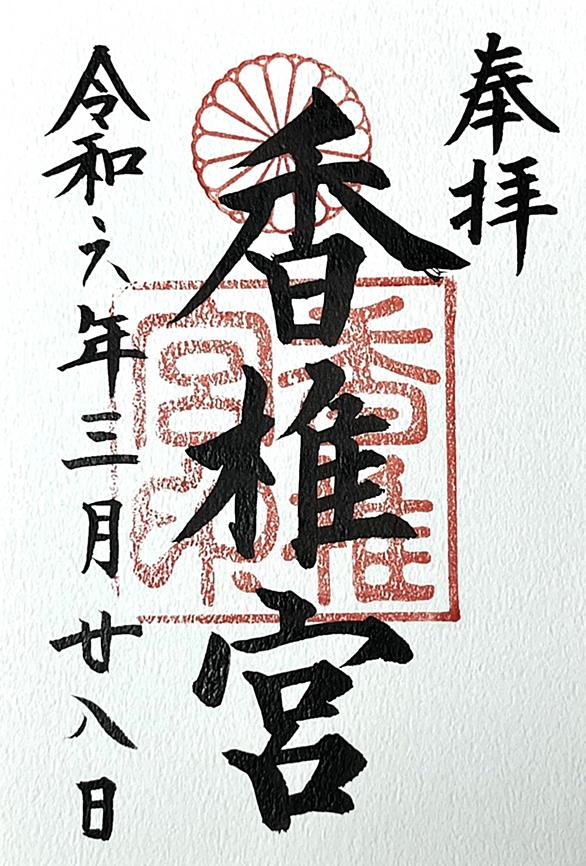 奉拝
香椎宮
香椎宮印
令和六年三月廿八日